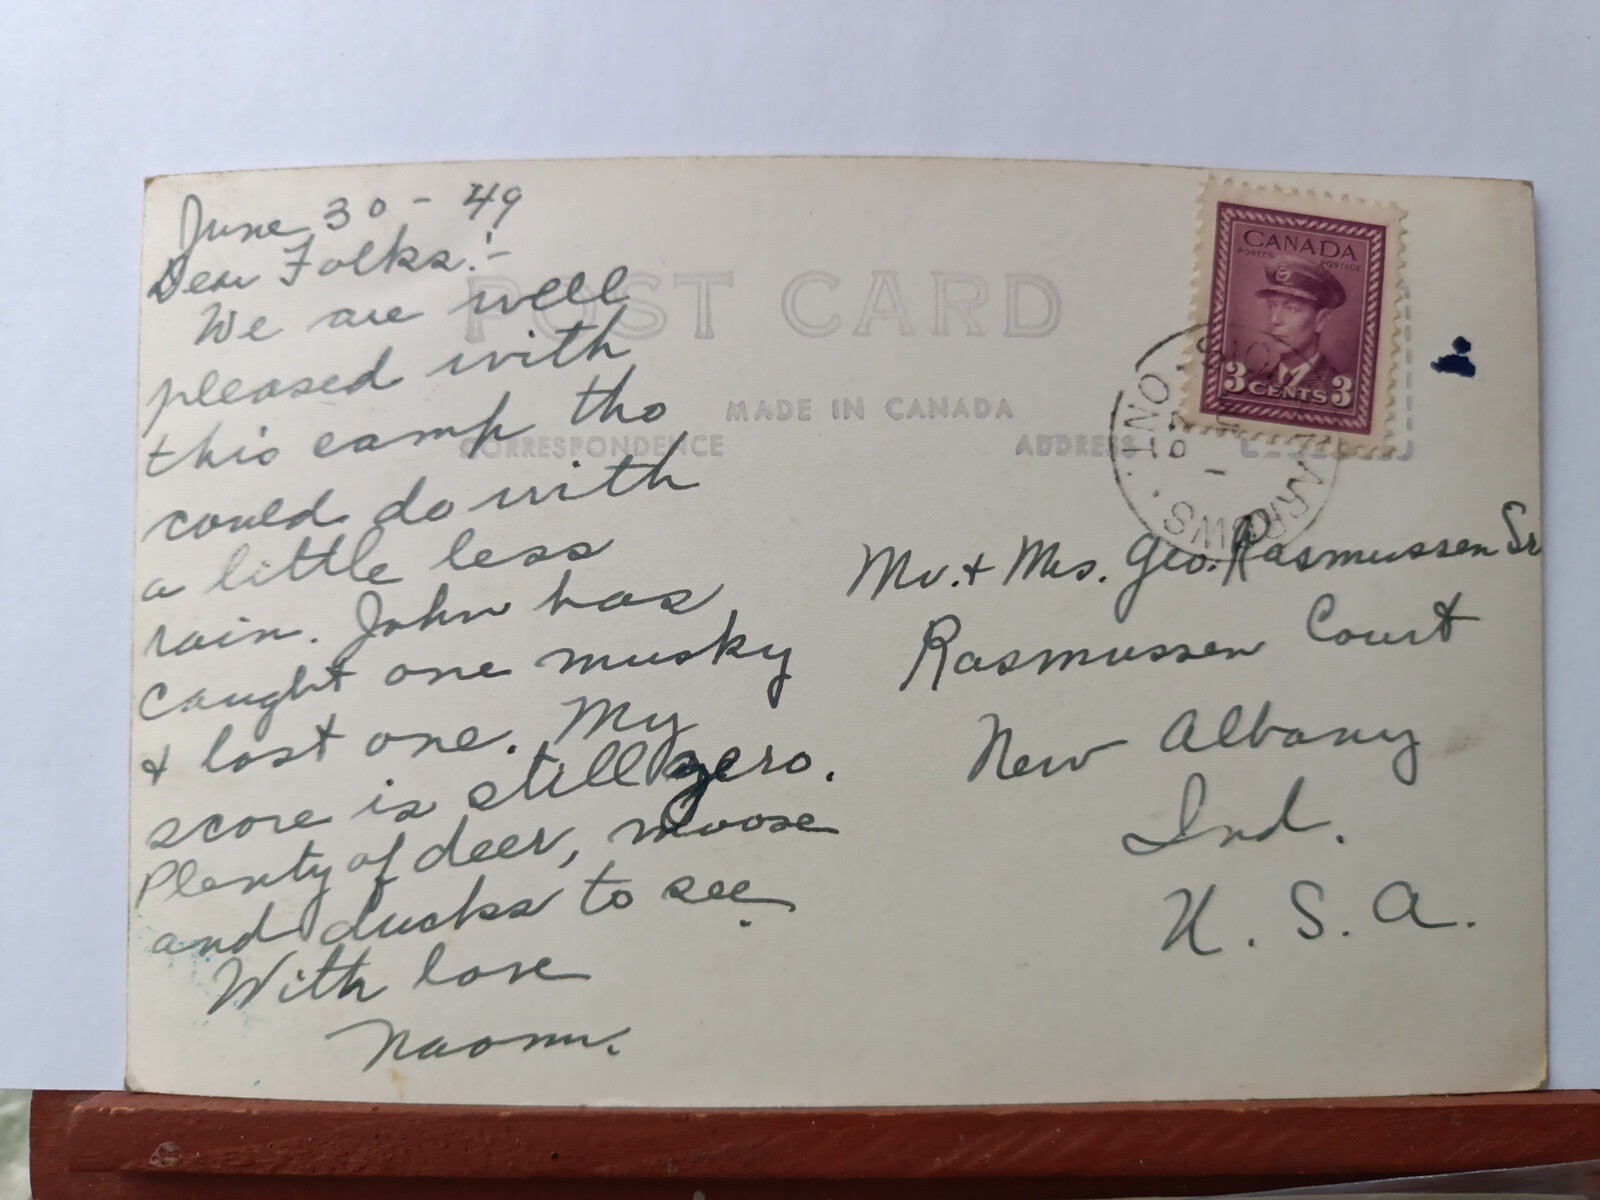 June 30 - 49
Dear Folks:-
We are well
pleased with
this camp tho
could do with
a little less
rain. John has
caught one musky
& lost one. My
score is still zero.
Plenty of deer, moose
and ducks to see.
With love
Naomi.
POST CARD
MADE IN CANADA
CORRESPONDENCE
ADDRESS
CANADA
POSTES POSTAGE
3 CENTS 3
NARROWS · ONT.
Mr. & Mrs. Geo. Rasmussen Sr
Rasmussen Court
New Albany
Ind.
U. S. A.